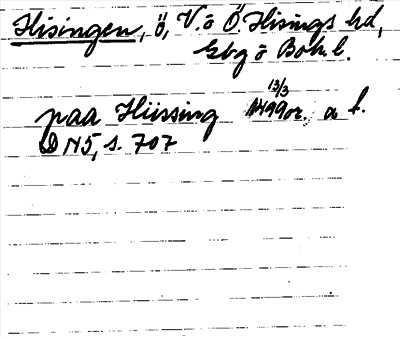 Hisingen, ö, V. o Ö. Hisings hd,
Gbg o Boh l.
paa Hiissing 13/3 1499 or. a f.
DN5, s. 707